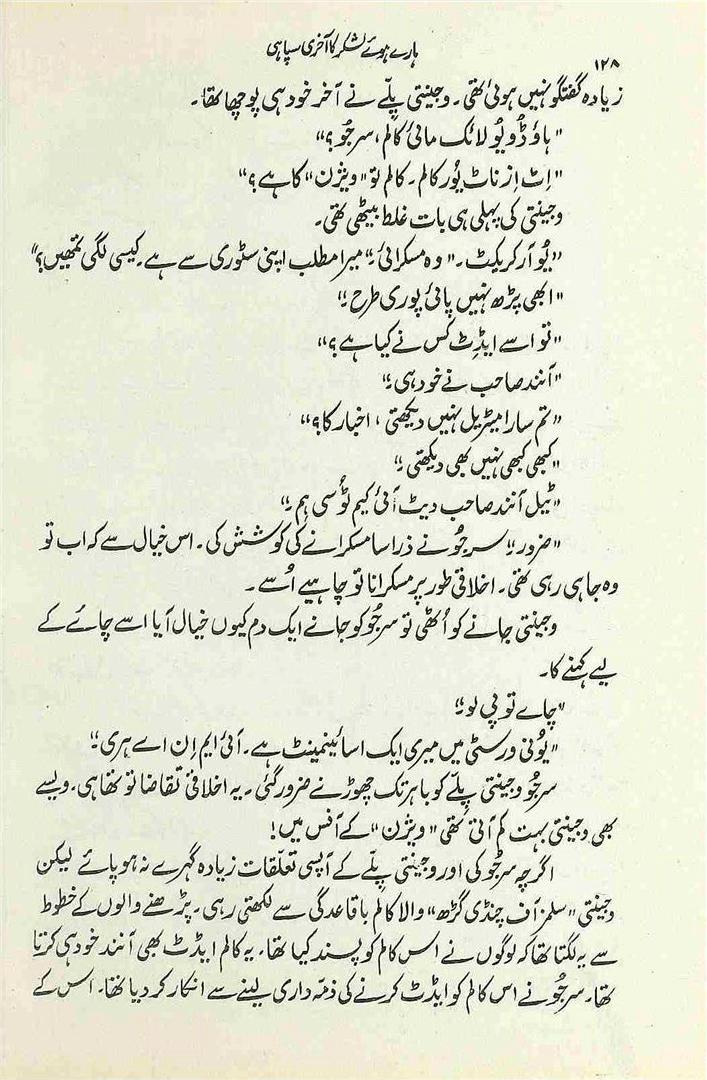 ہارے ہوئے لشکر کا آخری سپاہی
۱۲۸
زیادہ گفتگو نہیں ہوئی تھی۔ وجینتی پلّے نے آخر خود ہی پوچھا تھا۔
"ہاؤ ڈُو یُو لائک مائی کالم، سرجُو؟"
"اِٹ اِز ناٹ یُور کالم۔ کالم تو "ویژن" کا ہے؟"
وجینتی کی پہلی ہی بات غلط بیٹھی تھی۔
"یُو آر کریکٹ۔" وہ مسکرائی؛ "میرا مطلب اپنی سٹوری سے ہے۔ کیسی لگی تمھیں؟"
"ابھی پڑھ نہیں پائی پوری طرح؛"
"تو اسے ایڈِٹ کس نے کیا ہے؟"
"آنند صاحب نے خود ہی؛"
"تم سارا میٹریل نہیں دیکھتی، اخبار کا؟"
"کبھی کبھی نہیں بھی دیکھتی؛"
"ٹیل آنند صاحب دیٹ آئی کیم ٹُو سی ہِم؛"
"ضرور؛" سرجُو نے ذرا سا مسکرانے کی کوشش کی۔ اس خیال سے کہ اب تو
وہ جا ہی رہی تھی۔ اخلاقی طور پر مسکرانا تو چاہیے اُسے۔
وجینتی جانے کو اُٹھی تو سرجُو کو جانے ایک دم کیوں خیال آیا اسے چائے کے
لیے کہنے کا۔
"چاے تو پی لو؛"
"یُونی ورسٹی میں میری ایک اسائینمینٹ ہے۔ آئی ایم اِن اے ہری؛"
سرجُو وجینتی پلّے کو باہر تک چھوڑنے ضرور گئی۔ یہ اخلاقی تقاضا تو تھا ہی، ویسے
بھی وجینتی بہت کم آتی تھی "ویژن" کے آفس میں!
اگرچہ سرجُو کی اور وجینتی پلّے کے آپسی تعلّقات زیادہ گہرے نہ ہو پائے لیکن
وجینتی "سلمز آف چنڈی گڑھ" والا کالم باقاعدگی سے لکھتی رہی۔ پڑھنے والوں کے خطوط
سے یہ لگتا تھا کہ لوگوں نے اس کالم کو پسند کیا تھا۔ یہ کالم ایڈٹ بھی آنند خود ہی کرتا
تھا۔ سرجُو نے اس کالم کو ایڈٹ کرنے کی ذمّہ داری لینے سے انکار کر دیا تھا۔ اس کے